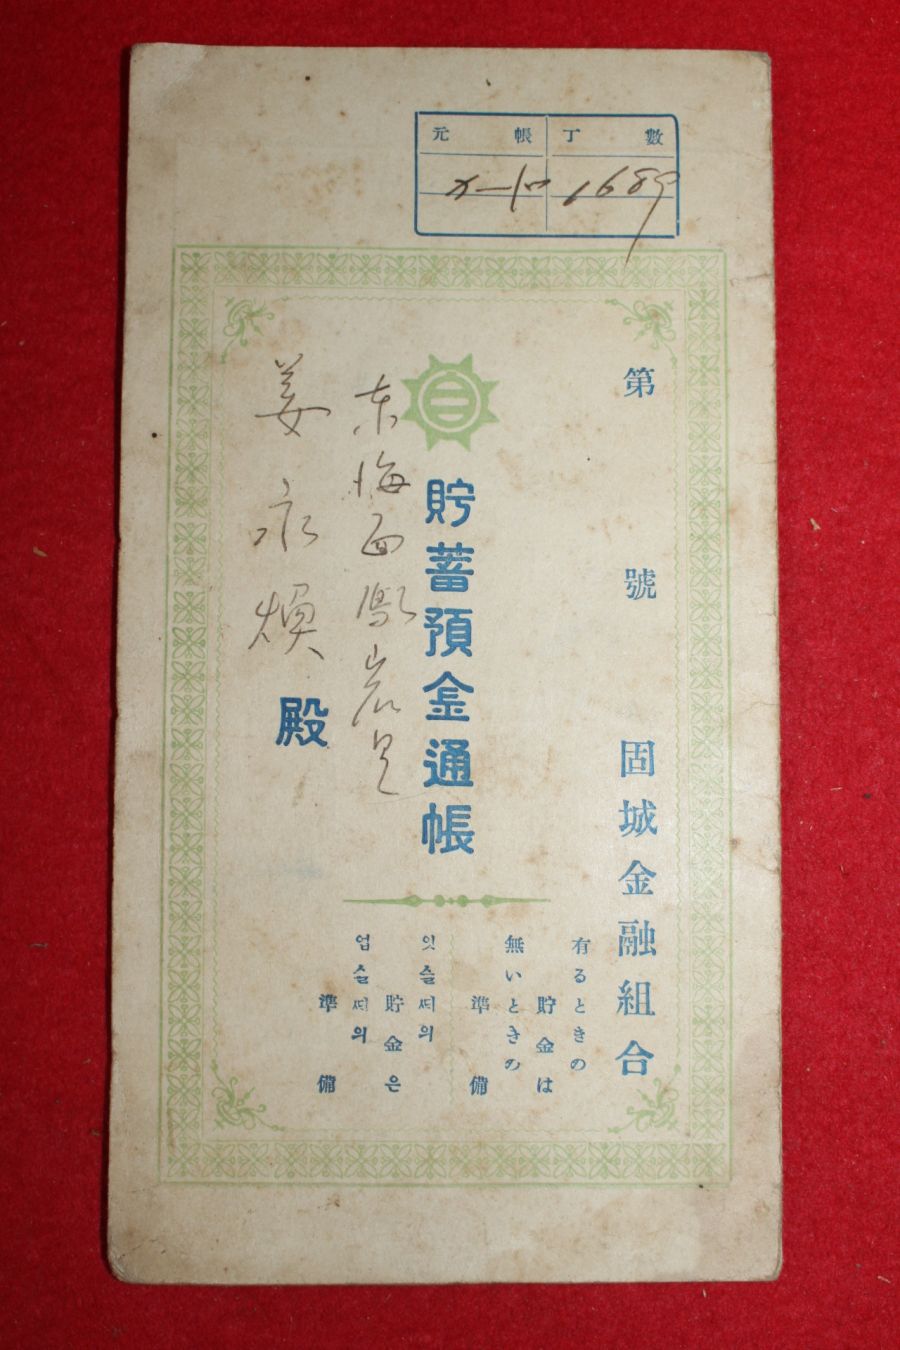 元帳丁數
1689
第 號
固城金融組合
貯蓄預金通帳
東海面鳳岩里
姜永煥 殿
有るときの
貯金は
無いときの
準備
잇슬ᄯᅢ의
貯金은
업슬ᄯᅢ의
準備